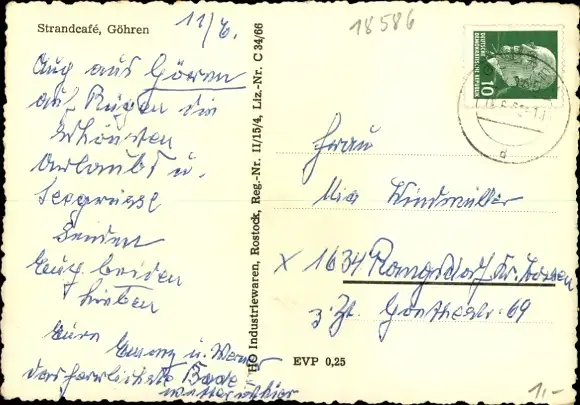 Strandcafé, Göhren
11/6.
18586
Auch aus Göhren
auf Rügen die
schönsten
Urlaubs u.
Seegrüsse
senden
Euch beiden
Lieben
Eure
u. Werner
das herrlichste Bade
wetter ist hier
HO Industriewaren, Rostock, Reg.-Nr. II/15/4, Liz.-Nr. C 34/66
DEUTSCHE
DEMOKRATISCHE REPUBLIK
10
d
Frau
Mia Windmüller
x 1634 Rangsdorf Kr. Zossen
z. Zt. Goethestr. 69
EVP 0,25
1,-